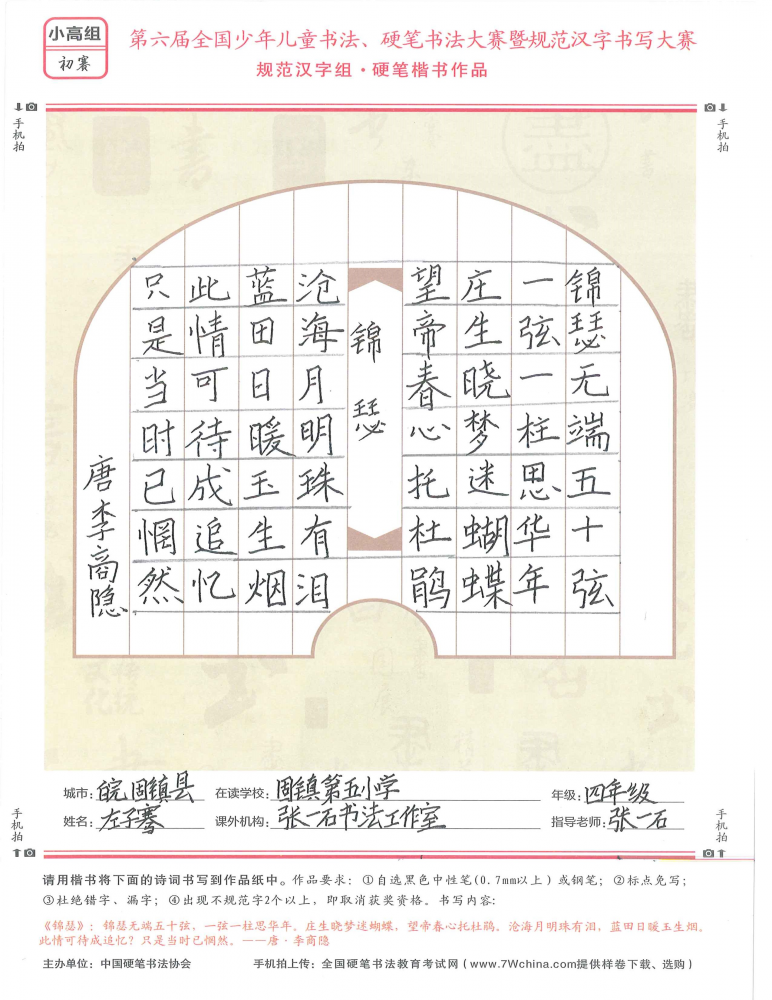 小高组
初赛
第六届全国少年儿童书法、硬笔书法大赛暨规范汉字书写大赛
规范汉字组·硬笔楷书作品
手机拍
手机拍
锦瑟无端五十弦
一弦一柱思华年
庄生晓梦迷蝴蝶
望帝春心托杜鹃
锦瑟
沧海月明珠有泪
蓝田日暖玉生烟
此情可待成追忆
只是当时已惘然
唐李商隐
城市：皖固镇县 在读学校：固镇第五小学 年级：四年级
姓名：左子骞 课外机构：张一石书法工作室 指导老师：张一石
手机拍
手机拍
请用楷书将下面的诗词书写到作品纸中。作品要求：①自选黑色中性笔(0.7mm以上）或钢笔；②标点免写；
③杜绝错字、漏字；④出现不规范字2个以上，即取消获奖资格。书写内容：
《锦瑟》：锦瑟无端五十弦，一弦一柱思华年。庄生晓梦迷蝴蝶，望帝春心托杜鹃。沧海月明珠有泪，蓝田日暖玉生烟。
此情可待成追忆？只是当时已惘然。——唐·李商隐
主办单位：中国硬笔书法协会 手机拍上传：全国硬笔书法教育考试网（www.7Wchina.com提供样卷下载、选购）